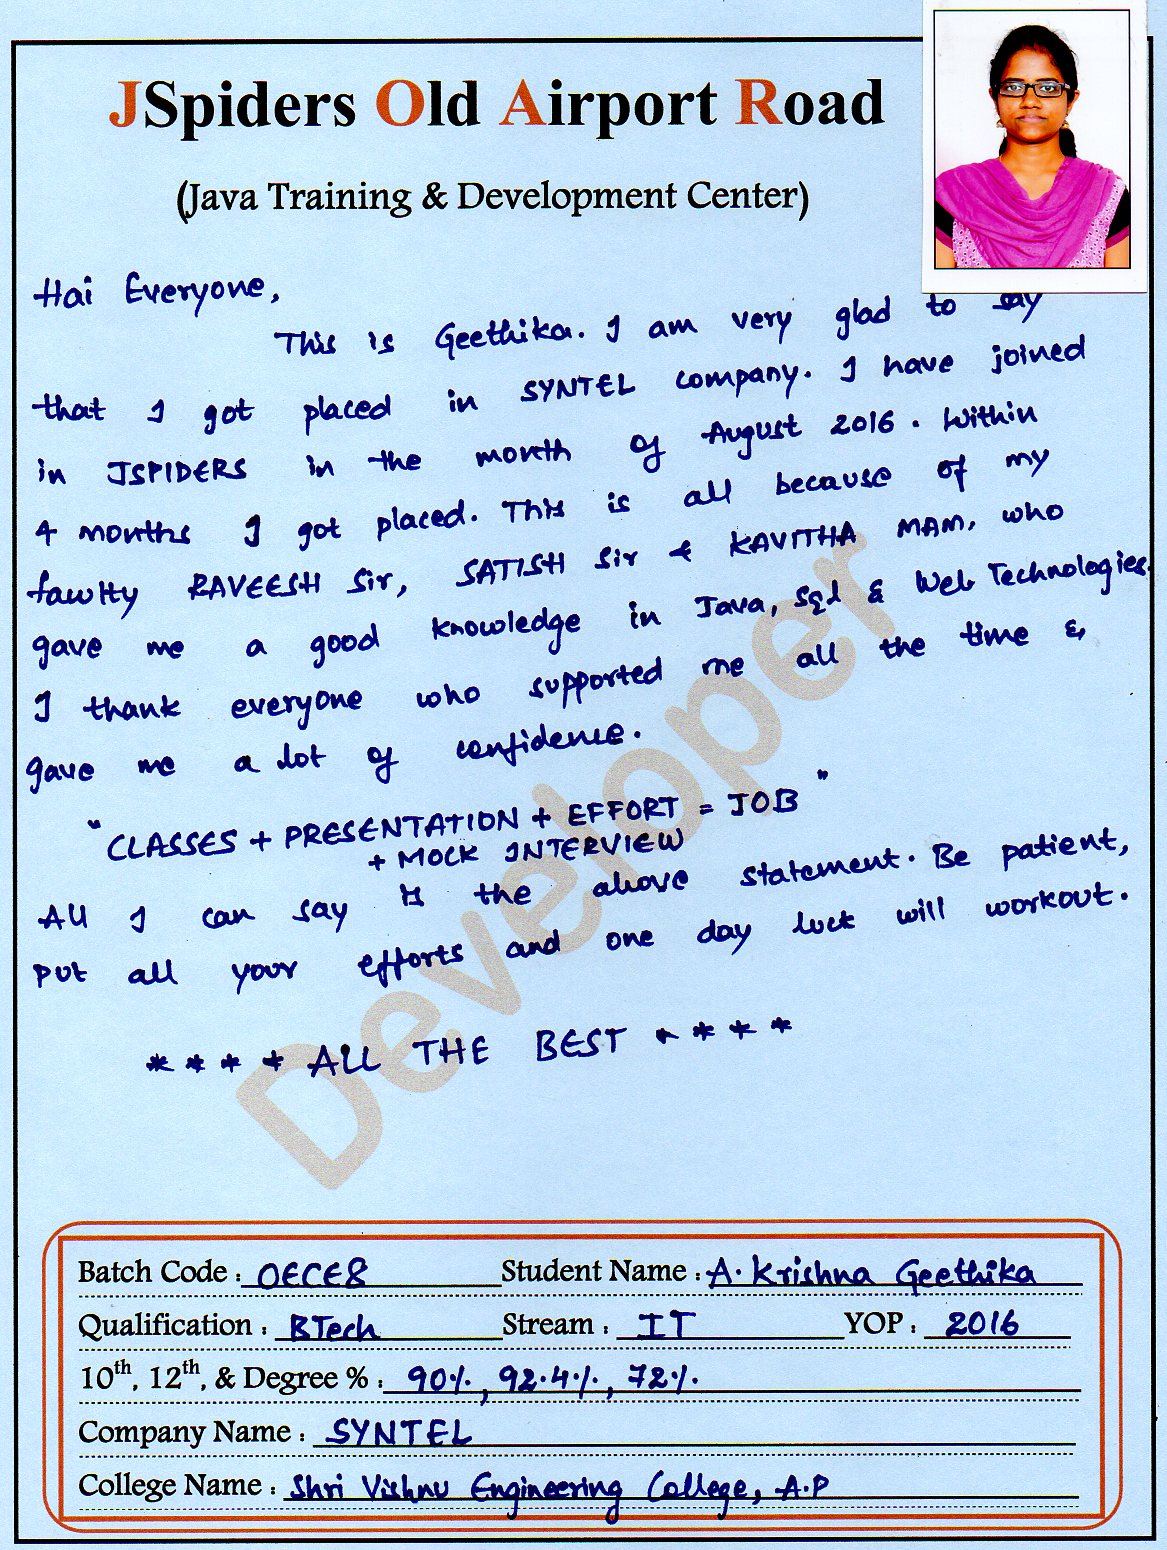 JSpiders Old Airport Road
(Java Training & Development Center)
Hai Everyone,
This is Geethika. I am very glad to say
that I got placed in SYNTEL company. I have joined
in JSPIDERS in the month of August 2016. Within
4 months I got placed. This is all because of my
faculty RAVEESH Sir, SATISH Sir & KAVITHA MAM, who
gave me a good knowledge in Java, Sql & Web Technologies.
I thank everyone who supported me all the time &
gave me a lot of confidence.
"CLASSES + PRESENTATION + EFFORT = JOB"
+ MOCK INTERVIEW
All I can say is the above statement. Be patient,
put all your efforts and one day luck will workout.
**** ALL THE BEST ****
Developer
Batch Code : OECE8 Student Name : A. Krishna Geethika
Qualification : BTech Stream : IT YOP : 2016
10th, 12th, & Degree % : 90%, 92.4%, 72%.
Company Name : SYNTEL
College Name : Shri Vishnu Engineering College, A.P